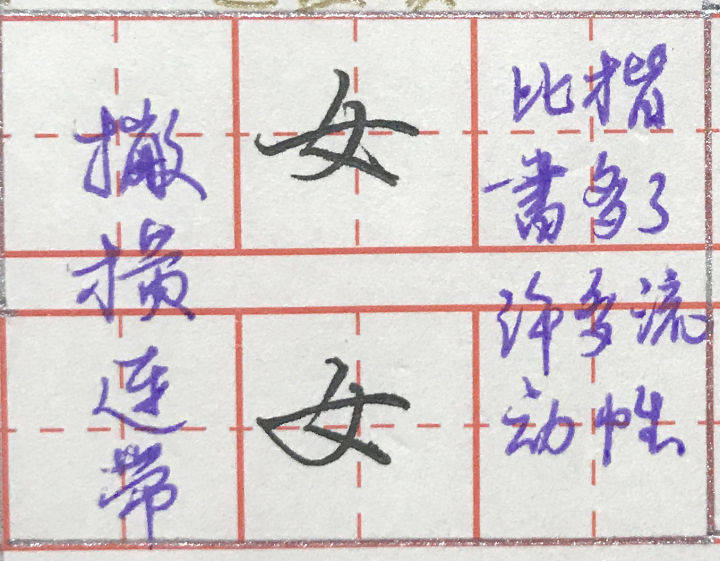 撇横连带
女
女
比楷
書多了
许多流
动性